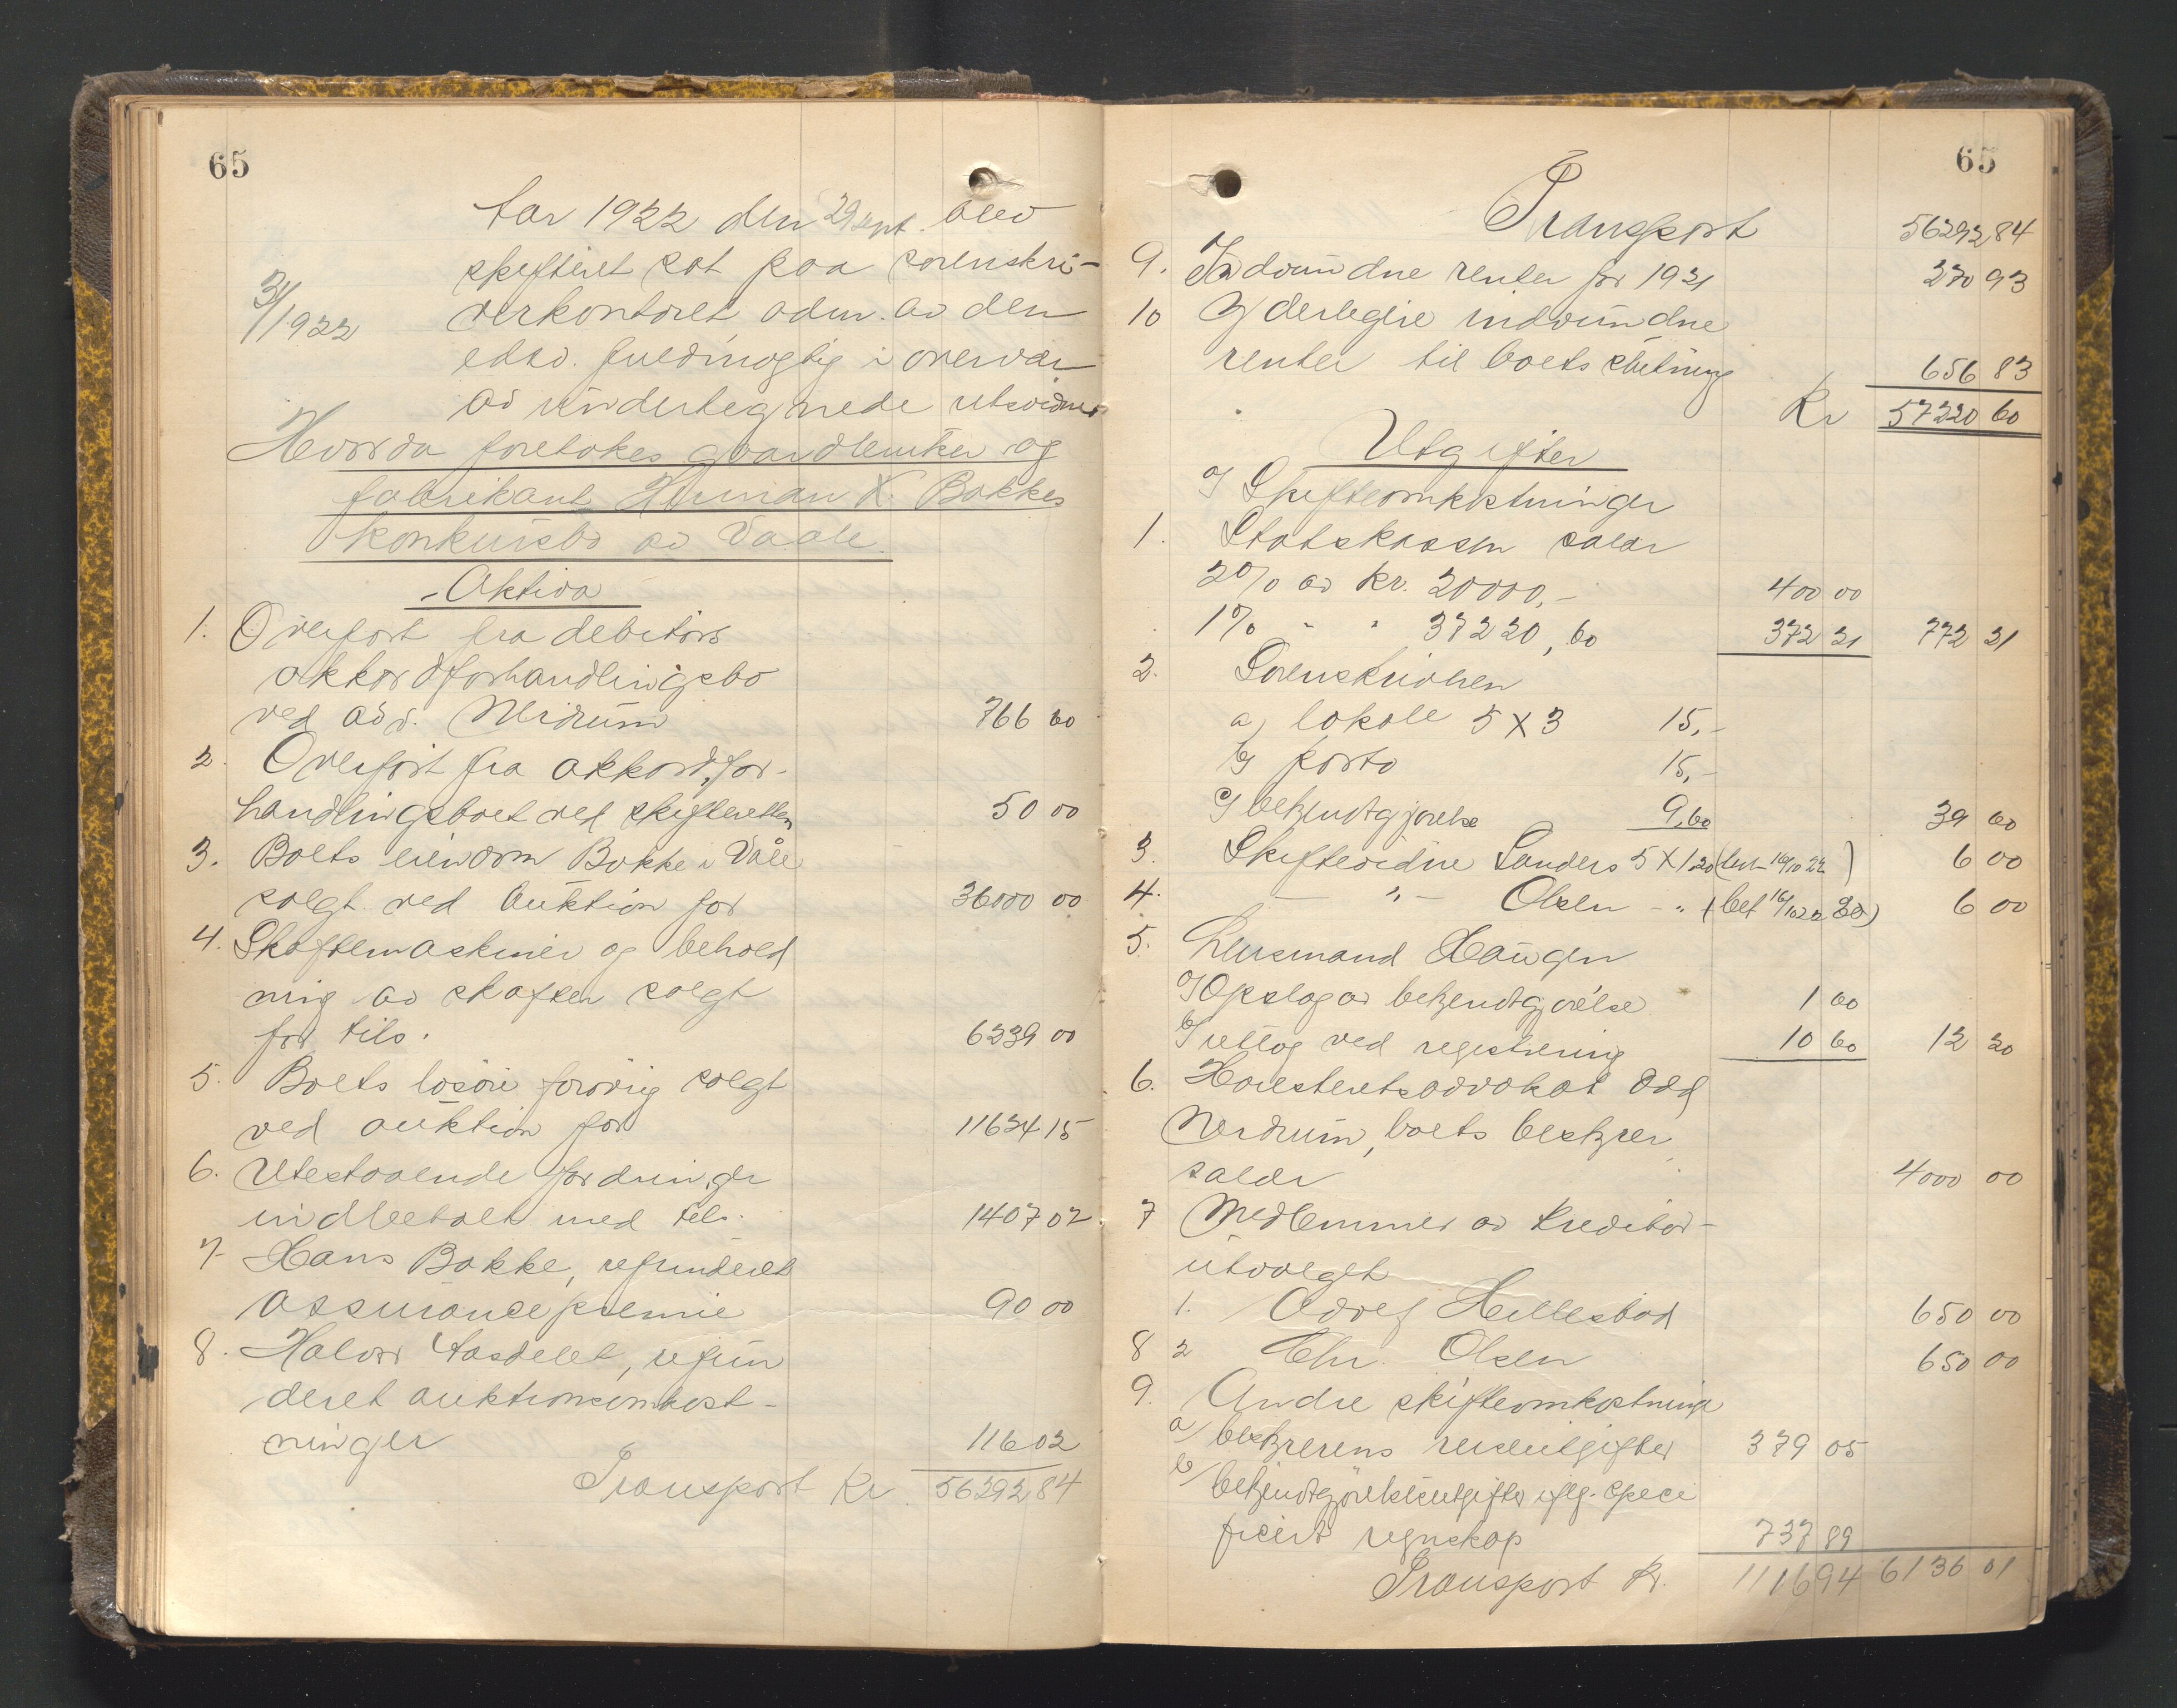 65
Aar 1922 den 29 sept. blev
skifteret sat paa sorenskri-
31/1922
verkontoret adm. av den
edsv. fuldmægtig i overvær
av undertegnede retsvidner
Hvorda foretokes gaardbruker og
fabrikant Herman K. Bakkes
konkursbo av Vaale.
Aktiva
1. Overført fra debitors
akkordforhandlingsbo
ved adv. Nerdrum 766 60
2. Overført fra akkordsfor-
handlingsboet ved skifteretten 50 00
3. Boets eiendom Bakke i Våle
solgt ved auktion for 36000 00
4. Skaftemaskiner og behold
ning av skafter solgt
for tils. 6239 00
5. Boets løsøre forøvrig solgt
ved auktion for 11624 15
6. Utestaaende fordringer
indbetalt med tils. 1407 02
7. Hans Bakke, refunderet
assurancepremie 90 00
8. Halvor Aasdelet, refun
deret auktionsomkost-
ninger 116 02
Transport Kr 56292 84
65
Transport 56292 84
9. Indvundne renter for 1921 270 93
10 Yderlegere indvundne
renter til boets slutning 656 83
Kr 57220 60
Utgifter
a) Skifteomkostninger
1. Statskassen salær
2% av kr. 20000,- 400 00
1% " " 37220,60 372 21 772 21
2. Sorenskriveren
a) lokale 5 X 3 15,-
b) porto 15,-
c) bekjendtgjørelse 9,60 39 60
3. Skiftevidne Sanders 5 X 1 20 (bet 16/10 22 ) 6 00
4. - " - Olsen - " (bet 16/10 22 ) 6 00
5. Lensmand Haugen
a) Opslag av bekjendtgjørelse 1 60
b) uttog ved registrering 10 60 12 20
6. Høiesteretsadvokat Odd
Nerdrum, boets bestyrer,
salær 4000 00
7 Medlemmer av kreditor-
utvalget
1. Advef Hillestad 650 00
8 2 Chr. Olsen 650 00
9. Andre skifteomkostninger
a) bestyrerens reiseutgifter 379 05
b) bekjendtgjørelsesutgifter iflg. speci
ficert regnskap 737 89
Transport Kr. 1116 94 6136 01